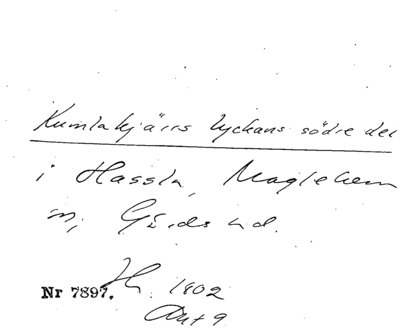 Kumlakjärrs lyckans södre del
i Hassla, Maglehem
s, Gärds hd.
Nr 7897. 1802
Akt 9